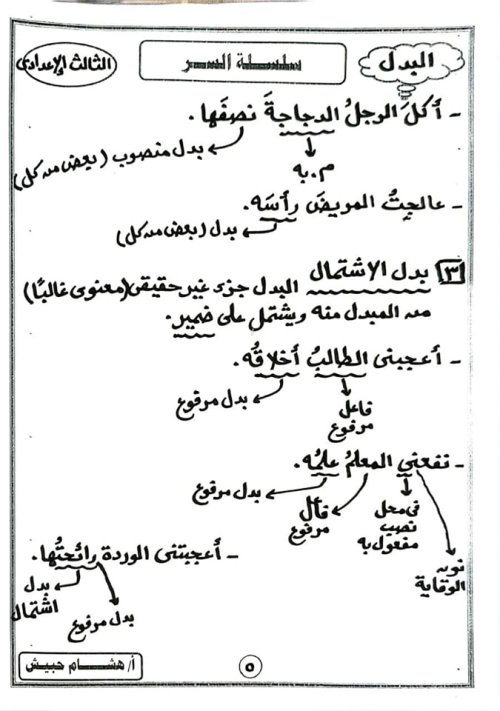 البدل
سلسلة السر
الثالث الإعدادى
- أكلَ الرجلُ الدجاجةَ نصفَها.
م.به
بدل منصوب (بعض من كل)
- عالجتُ المريضَ رأسَه.
بدل (بعض من كل)
٣ بدل الاشتمال البدل جزء غير حقيقى (معنوى غالبًا)
من المبدل منه ويشتمل على ضمير.
- أعجبنى الطالبُ أخلاقُه.
فاعل مرفوع
بدل مرفوع
- نفعني المعلمُ علمُه.
نون الوقاية
فى محل نصب مفعول به
فاعل مرفوع
بدل مرفوع
- أعجبتنى الوردة رائحتُها.
بدل مرفوع
بدل اشتمال
٥
أ/ هشام حبيش